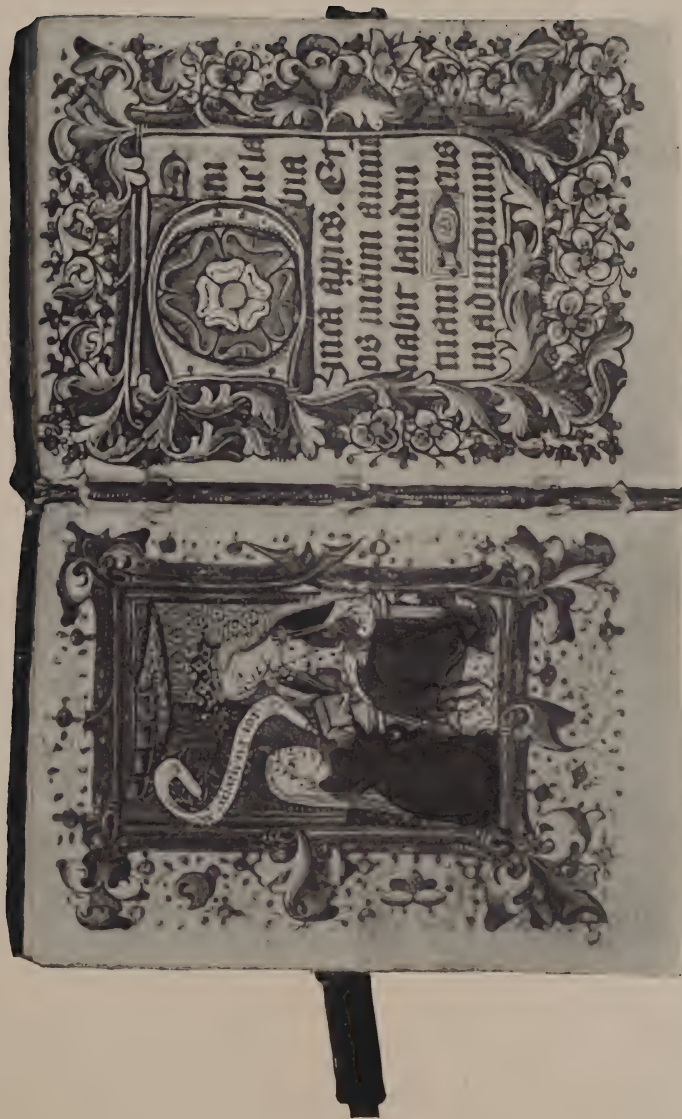 DO
mi
ne la
bia
mea apies. Et
os meum annu
ciabit laudem
tuam. Deus
in adiutorium